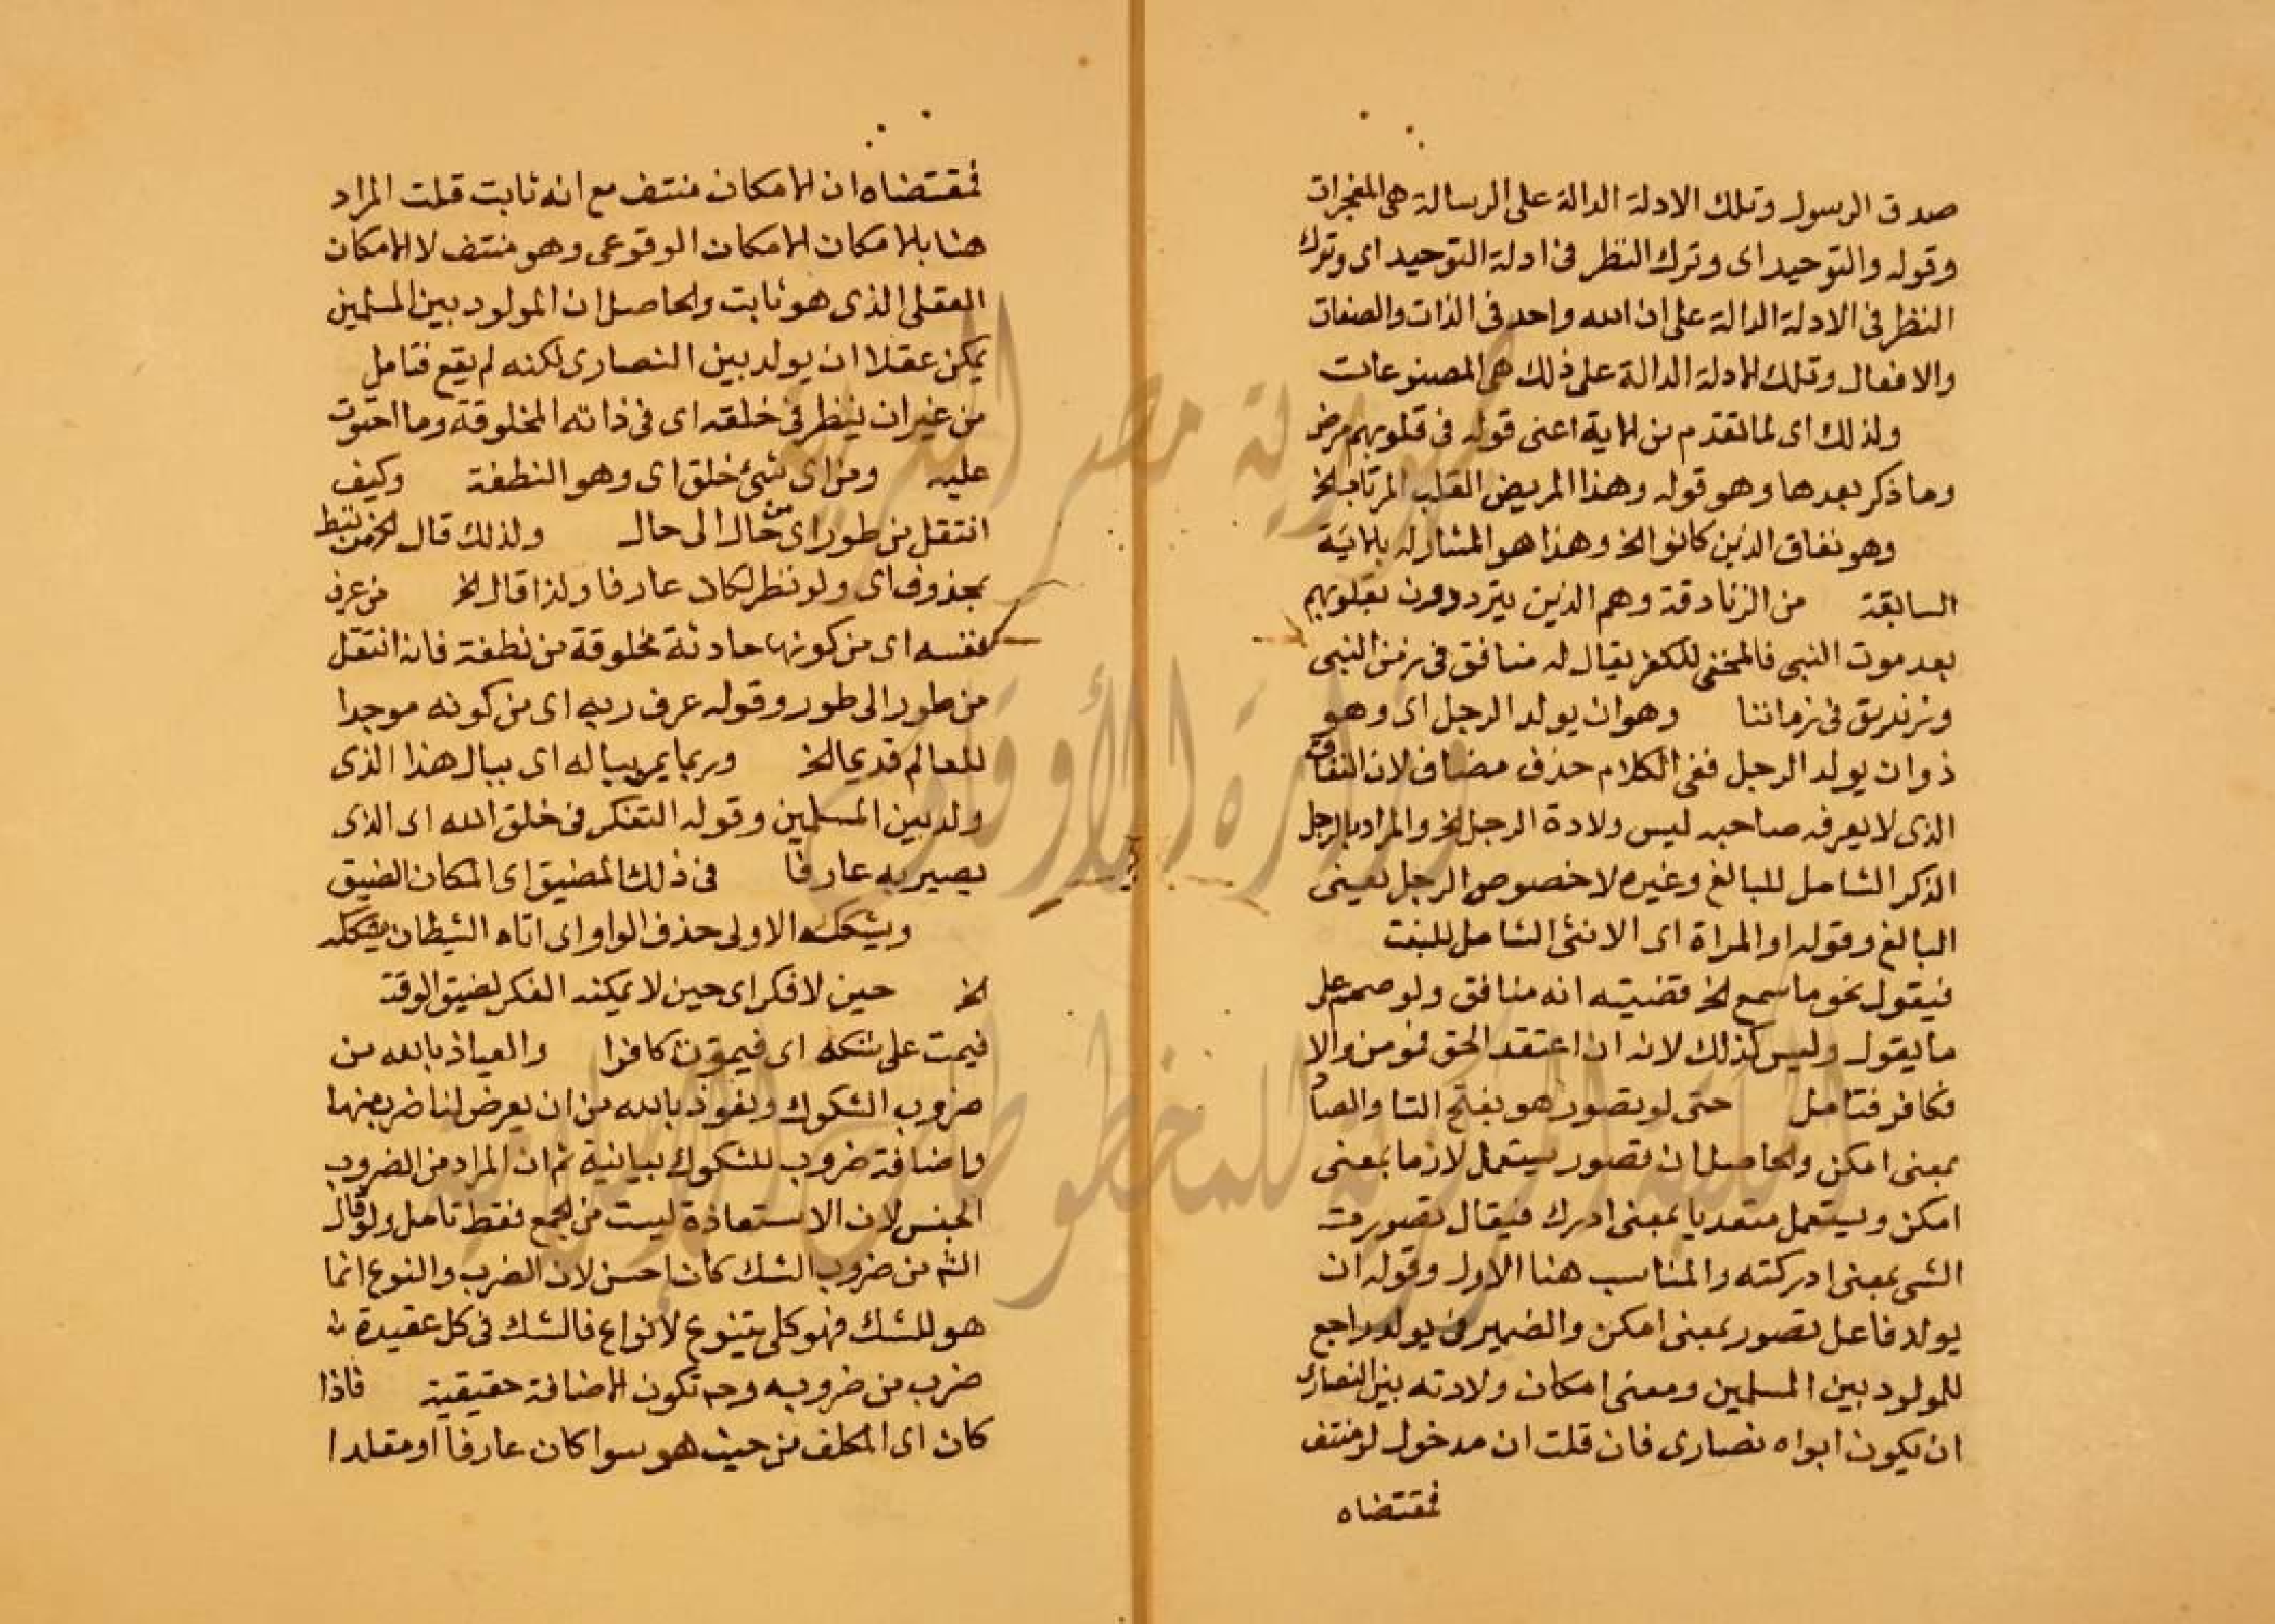 صدق الرسول وتلك الادلة الدالة على الرسالة هى المعجزات
وقوله والتوحيد اى وترك النظر فى ادلة التوحيد اى وترك
النظر فى الادلة الدالة على ان الله واحد فى الذات والصفات
والافعال وتلك الادلة الدالة على ذلك هى المصنوعات
ولذلك اى لما تقدم من الاية اعنى قوله فى قلوبهم مرض
وما ذكر بعدها وهو قوله وهذا المريض القلب المرتاب الخ
وهو نفاق الذين كانوا الخ وهذا هو المشار له بالاية
السابقة من الزنادقة وهم الذين يترددون بقلوبهم
بعد موت النبى فالمخفى للكفر يقال له منافق فى زمن النبى
وزنديق فى زماننا وهو ان يولد الرجل اى وهو
ذو ان يولد الرجل ففى الكلام حذف مضاف لان النفاق
الذى لا يعرفه صاحبه ليس ولادة الرجل الخ والمراد بالرجل
الذكر الشامل للبالغ وغيره لا خصوص الرجل بمعنى
البالغ وقوله او المراة اى الانثى الشامل للبنت
فيقول نحو ما سمع الخ قضيته انه منافق ولو صمم على
ما يقول وليس كذلك لانه ان اعتقد الحق فمومن والا
فكافر فتامل حتى لو تصور هو بفتح التا والصاد
بمعنى امكن والحاصل ان تصور يستعمل لازما بمعنى
امكن ويستعمل متعديا بمعنى ادرك فيقال تصورت
الشى بمعنى ادركته والمناسب هنا الاول وقوله ان
يولد فاعل تصور بمعنى امكن والضمير فى يولد راجع
للمولود بين المسلمين ومعنى امكان ولادته بين النصارى
ان يكون ابواه نصارى فان قلت ان مدخول لو منتف
فمقتضاه
فمقتضاه ان الامكان منتف مع انه ثابت قلت المراد
هنا بالامكان الامكان الوقوعى وهو منتف لا الامكان
العقلى الذى هو ثابت والحاصل ان المولود بين المسلمين
يمكن عقلا ان يولد بين النصارى لكنه لم يقع فتامل
من غير ان ينظر فى خلقه اى فى ذاته المخلوقة وما احتوت
عليه ومن اى شئ خلق اى وهو النطفة وكيف
انتقل من طور اى من حال الى حال ولذلك قال الخ مرتبط
بمحذوف اى ولو نظر لكان عارفا ولذا قال الخ من عرف
نفسه اى من كونها حادثة مخلوقة من نطفة فانه انتقل
من طور الى طور وقوله عرف ربه اى من كونه موجدا
للعالم قديما الخ وربما يمر بباله اى ببال هذا الذى
ولد بين المسلمين وقوله التفكر فى خلق الله اى الذى
يصير به عارفا فى ذلك المضيق اى المكان الضيق
ويشككه الاولى حذف الواو اى اتاه الشيطان يشككه
الخ حين لا فكر اى حين لا يمكنه الفكر لضيق الوقت
فيمت على شكه اى فيموت كافرا والعياذ بالله من
ضروب الشكوك ونعوذ بالله من ان يعرض لنا ضرب منها
واضافة ضروب للشكوك بيانية ثم ان المراد من الضروب
الجنس لان الاستعاذة ليست من الجمع فقط تامل ولو قال
الشم من ضروب الشك كان احسن لان الضرب والنوع انما
هو للشك فهو كلى يتنوع لانواع فالشك فى كل عقيدة
ضرب من ضروبه وح تكون الاضافة حقيقية فاذا
كان اى المكلف من حيث هو سوا كان عارفا او مقلدا